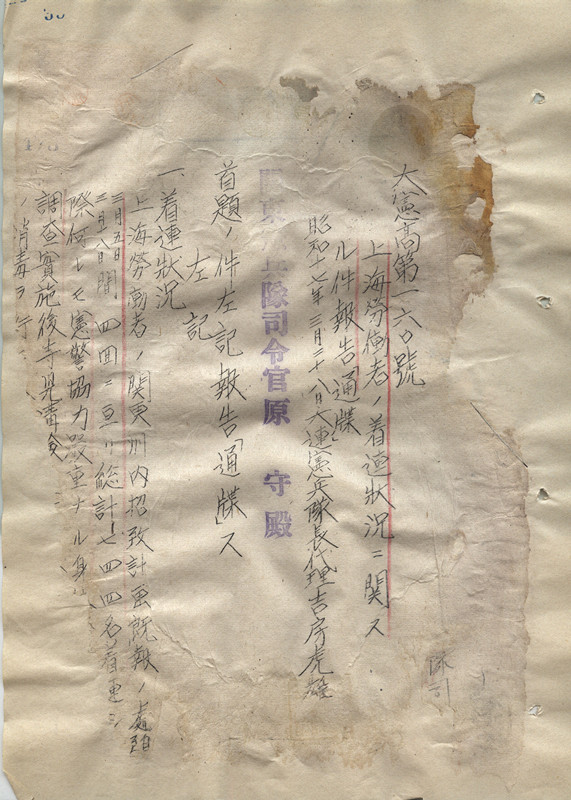 大憲高第一六〇號
上海勞働者ノ着連狀況ニ関ス
ル件報告「通牒」
昭和十七年三月三十八日大連憲兵隊長代理吉房虎雄
関東憲兵隊司令官原 守殿
首題ノ件左記報告「通牒」ス
左記
一、着連狀況
上海勞働者ノ関東州内招致計画既報ノ處
三月五日
三月一八日間四回ニ亘リ総計七四四名着連シ
際何レモ憲警協力嚴重ナル身
調査實施後寺児溝
ノ消毒ヲ行